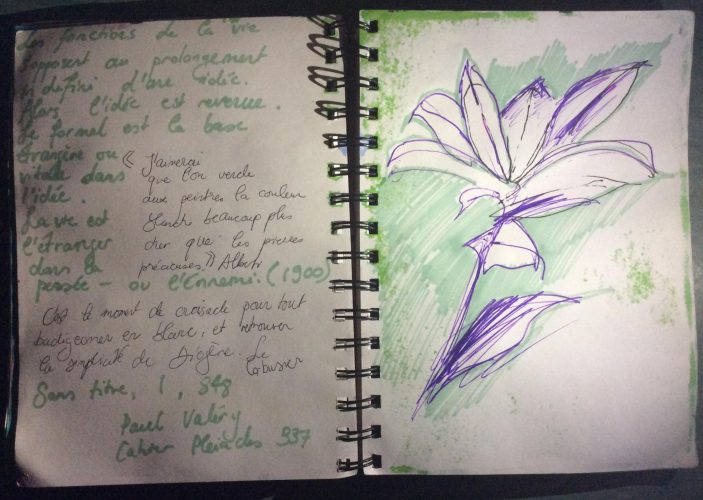 Les fonctions de la vie
s'opposent au prolongement
indéfini d'une idée.
Alors l'idée est revenue.
Le formel est la base
étrangère ou
vitale dans
l'idée.
La vie est
l'étranger
dans la
pensée - ou l'Ennemi. (1900)
« J'aimerai
que l'on vende
aux peintres la couleur
blanche beaucoup plus
cher que les pierres
précieuses. » Alberti
C'est le moment de croisade pour tout
badigeonner en blanc, et retrouver
la simplicité de Diogène. Le
Corbusier
Sans titre, I, 848
Paul Valéry
Cahier Pleiades 337